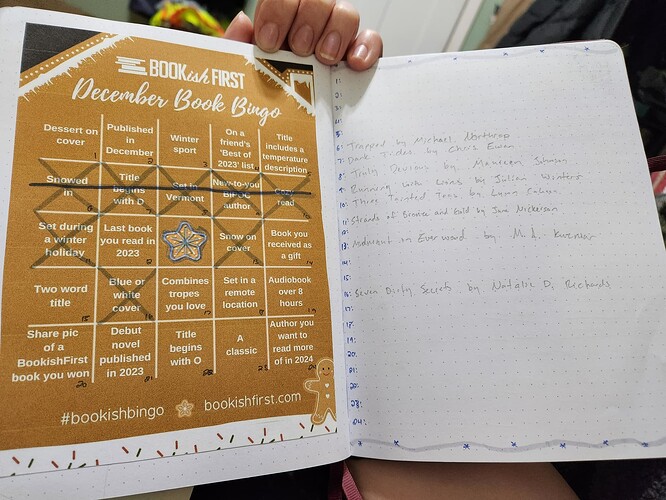 BOOKish FIRST
December Book Bingo
Dessert on cover
1
Published in December
2
Winter sport
3
On a friend's 'Best of 2023' list
Title includes a temperature description
5
Snowed in
Title begins with D
Set in Vermont
New-to-you BIPOC author
Cozy read
Set during a winter holiday
Last book you read in 2023
12
Snow on cover
Book you received as a gift
14
Two word title
15
Blue or white cover
Combines tropes you love
17
Set in a remote location
18
Audiobook over 8 hours
19
Share pic of a BookishFirst book you won
20
Debut novel published in 2023
21
Title begins with O
22
A classic
23
Author you want to read more of in 2024
24
#bookishbingo
bookishfirst.com
1:
2:
3:
4:
5:
6: Trapped by Michael Northrop
7: Dark Tides by Chris Ewan
8: Truly Devious by Maureen Johnson
9: Running with Lions by Julian Winters
10: Three Tainted Teas by Lynn Cahoon
11: Strands of Bronze and Gold by Jane Nickerson
12:
13: Midnight on Everwood by M.A. Kuzniar
14:
15:
16: Seven Dirty Secrets by Natalie D. Richards
17:
18:
19:
20:
21:
22:
23:
24: